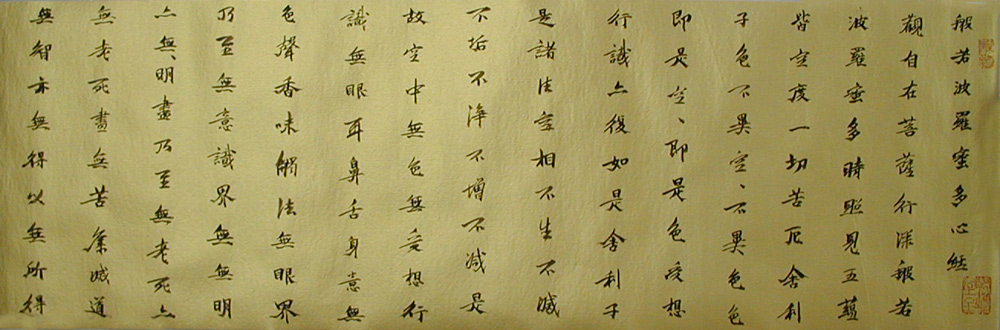 般若波羅蜜多心經
觀自在菩薩行深般若
波羅蜜多時照見五蘊
皆空度一切苦厄舍利
子色不異空、不異色色
即是空、即是色受想
行識亦復如是舍利子
是諸法空相不生不滅
不垢不淨不增不減是
故空中無色無受想行
識無眼耳鼻舌身意無
色聲香味觸法無眼界
乃至無意識界無無明
亦無、明盡乃至無老死亦
無老死盡無苦集滅道
無智亦無得以無所得